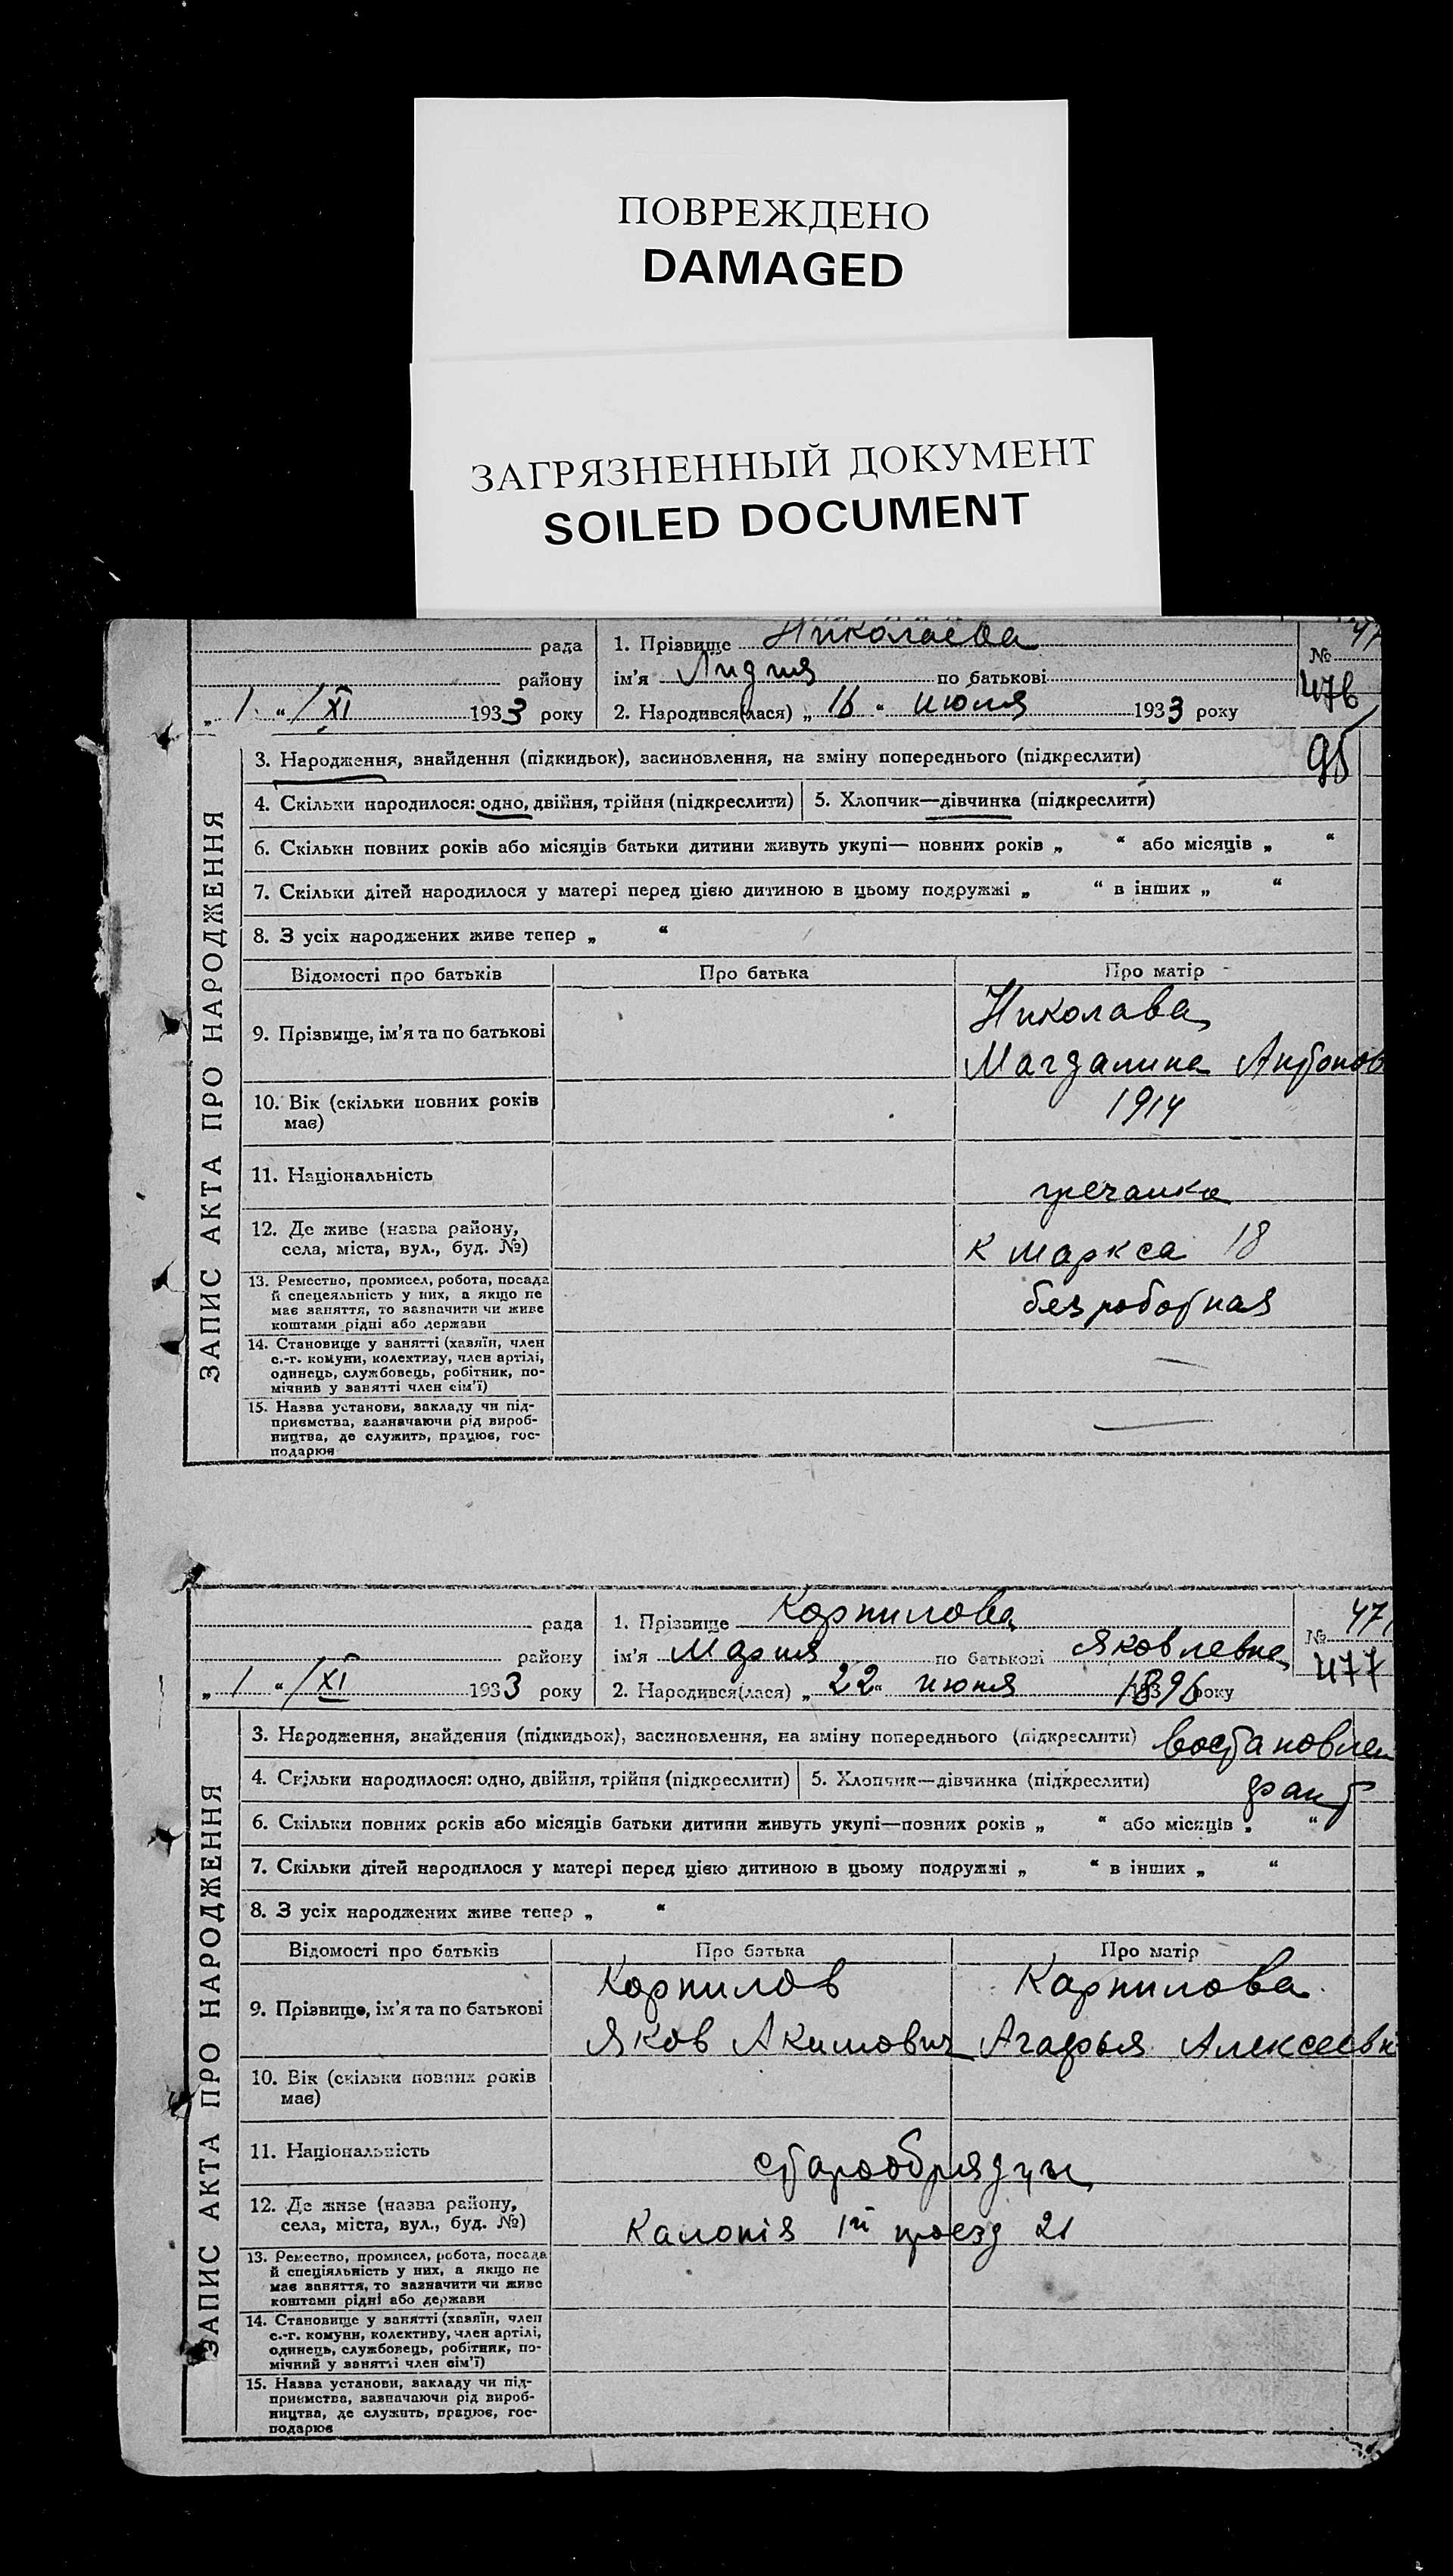 ПОВРЕЖДЕНО
DAMAGED
ЗАГРЯЗНЕННЫЙ ДОКУМЕНТ
SOILED DOCUMENT
рада
1. Прізвище Николаева
№ 47
району
ім'я Лидия по батькові
476
„ 1 “ /XI 1933 року
2. Народився(лася) „ 16 “ июля 1933 року
95
ЗАПИС АКТА ПРО НАРОДЖЕННЯ
3. Народження, знайдення (підкидьок), засиновлення, на зміну попереднього (підкреслити)
4. Скільки народилося: одно, двійня, трійня (підкреслити)
5. Хлопчик—дівчинка (підкреслити)
6. Скільки повних років або місяців батьки дитини живуть укупі— повних років „ “ або місяців „ “
7. Скільки дітей народилося у матері перед цією дитиною в цьому подружжі „ “ в інших „ “
8. З усіх народжених живе тепер „ “
Відомості про батьків
Про батька
Про матір
9. Прізвище, ім'я та по батькові
Николава
Магдалина Антонов
10. Вік (скільки повних років
має)
1914
11. Національність
гречанка
12. Де живе (назва району,
села, міста, вул., буд. №)
К Маркса 18
13. Ремество, промисел, робота, посада
й спецеяльність у них, а якщо не
має заняття, то зазначити чи живе
коштами рідні або держави
безработная
14. Становище у занятті (хазяїн, член
с.-г. комуни, колективу, член артілі,
одинець, службовець, робітник, по-
мічнив у занятті член сім'ї)
—
15. Назва установи, закладу чи під-
приємства, зазначаючи рід вироб-
ництва, де служить, працює, гос-
подарює
—
рада
1. Прізвище Корнилова
№ 47
району
ім'я Мария по батькові Яковлевна
477
„ 1 “ /XI 1933 року
2. Народився(лася) „ 22 “ июня 1896 року
ЗАПИС АКТА ПРО НАРОДЖЕННЯ
3. Народження, знайдення (підкидьок), засиновлення, на зміну попереднього (підкреслити) востановлен
4. Скільки народилося: одно, двійня, трійня (підкреслити)
5. Хлопчик—дівчинка (підкреслити)
факт
6. Скільки повних років або місяців батьки дитини живуть укупі—повних років „ “ або місяців „ “
7. Скільки дітей народилося у матері перед цією дитиною в цьому подружжі „ “ в інших „ “
8. З усіх народжених живе тепер „ “
Відомості про батьків
Про батька
Про матір
9. Прізвище, ім'я та по батькові
Корнилов
Яков Акимович
Карнилова
Агафья Алексеевн
10. Вік (скільки повних років
має)
11. Національність
старообрядцы
12. Де живе (назва району,
села, міста, вул., буд. №)
Калонія 1й проезд 21
13. Ремество, промисел, робота, посада
й спеціяльність у них, а якщо не
має заняття, то зазначити чи живе
коштами рідні або держави
14. Становище у занятті (хазяїн, член
с.-г. комуни, колективу, член артілі,
одинець, службовець, робітник, по-
мічний у занятті член сім'ї)
15. Назва установи, закладу чи під-
приємства, зазначаючи рід вироб-
ництва, де служить, працює, гос-
подарює